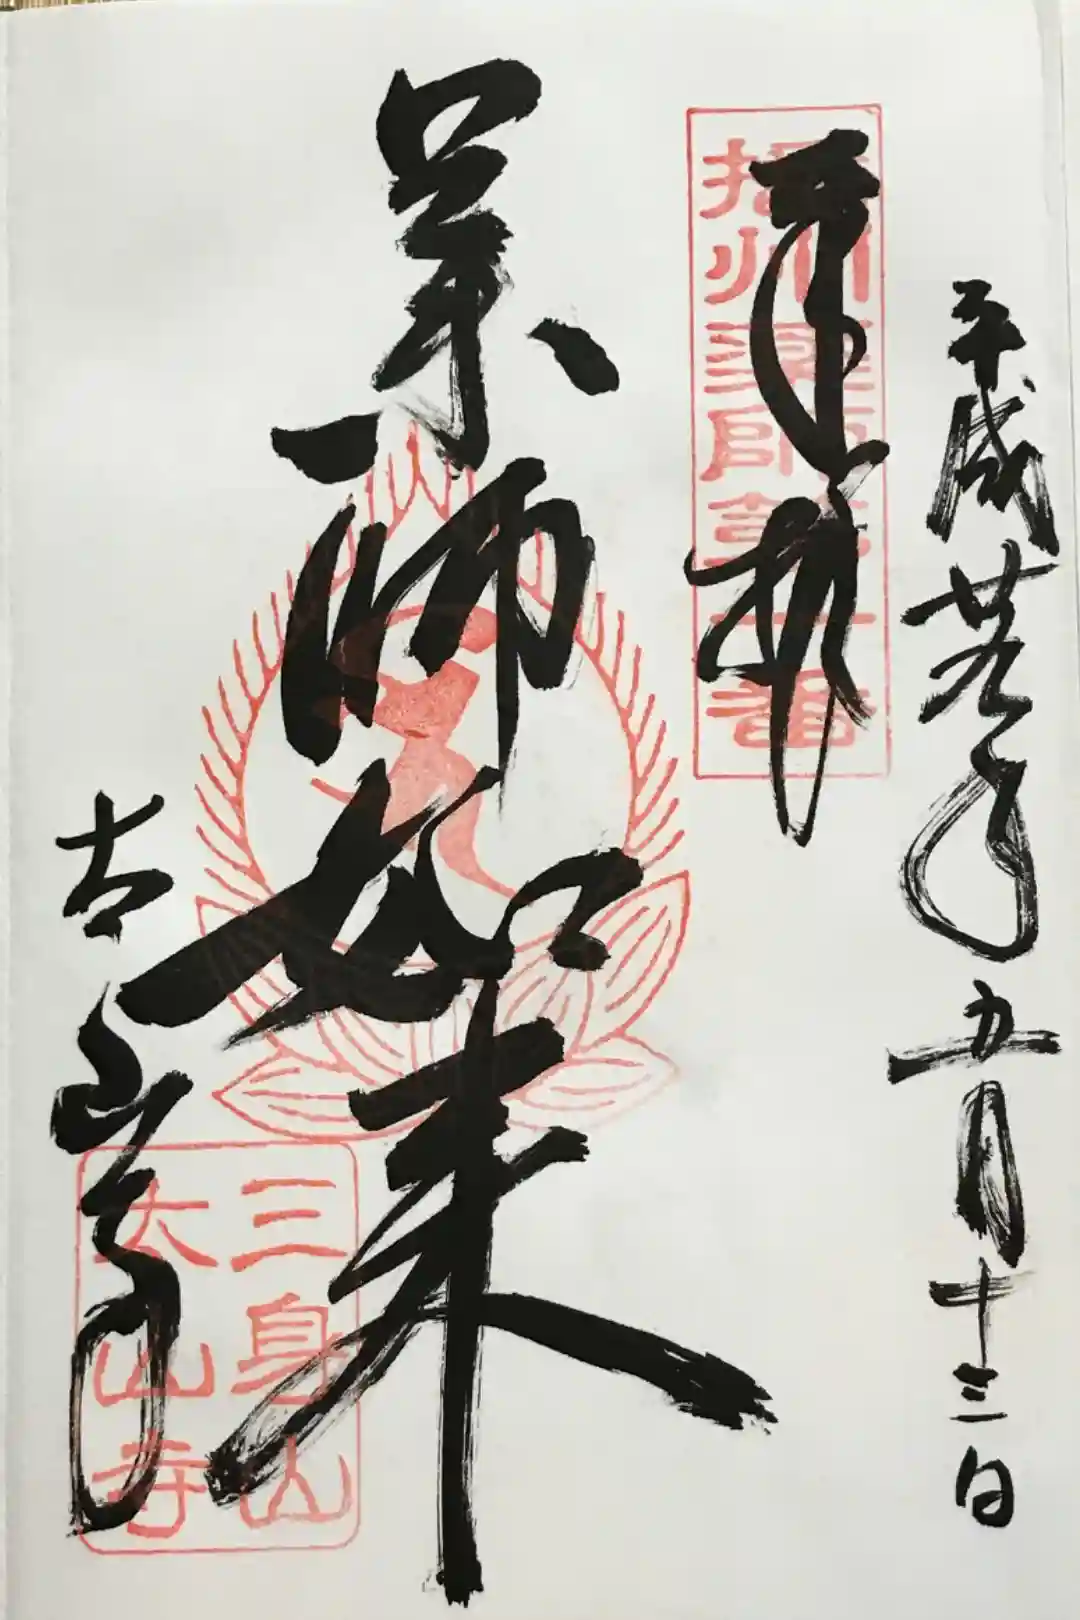 平成廿九年五月十三日
奉拝
播州薬師第
番
薬師如来
太山寺
三身山
太山寺